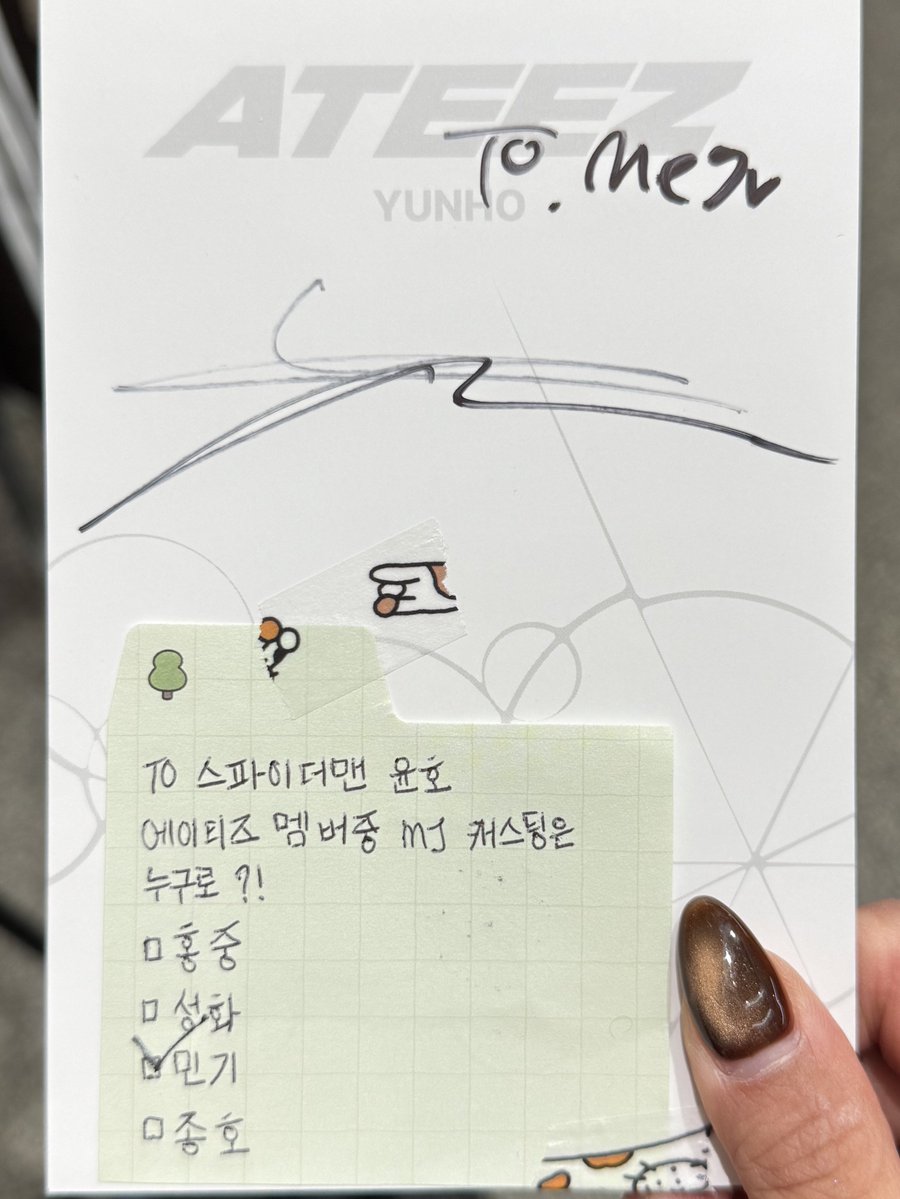 ATEEZ
YUNHO
TO. Megu
TO 스파이더맨 윤호
에이티즈 멤버중 MJ 캐스팅은
누구로?!
□ 홍중
□ 성화
☑ 민기
□ 종호